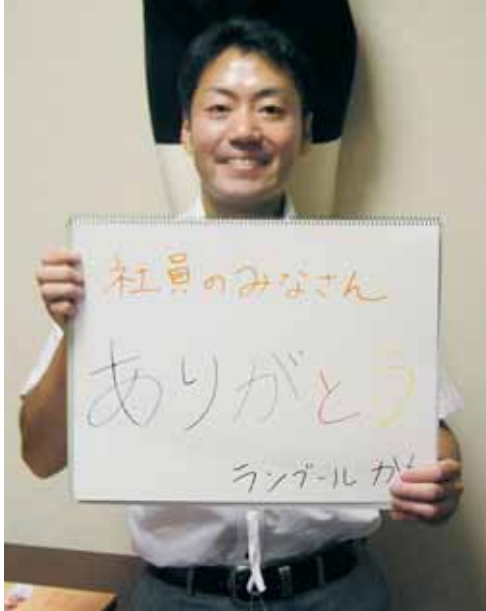 社員のみなさん
ありがとう
ランプール